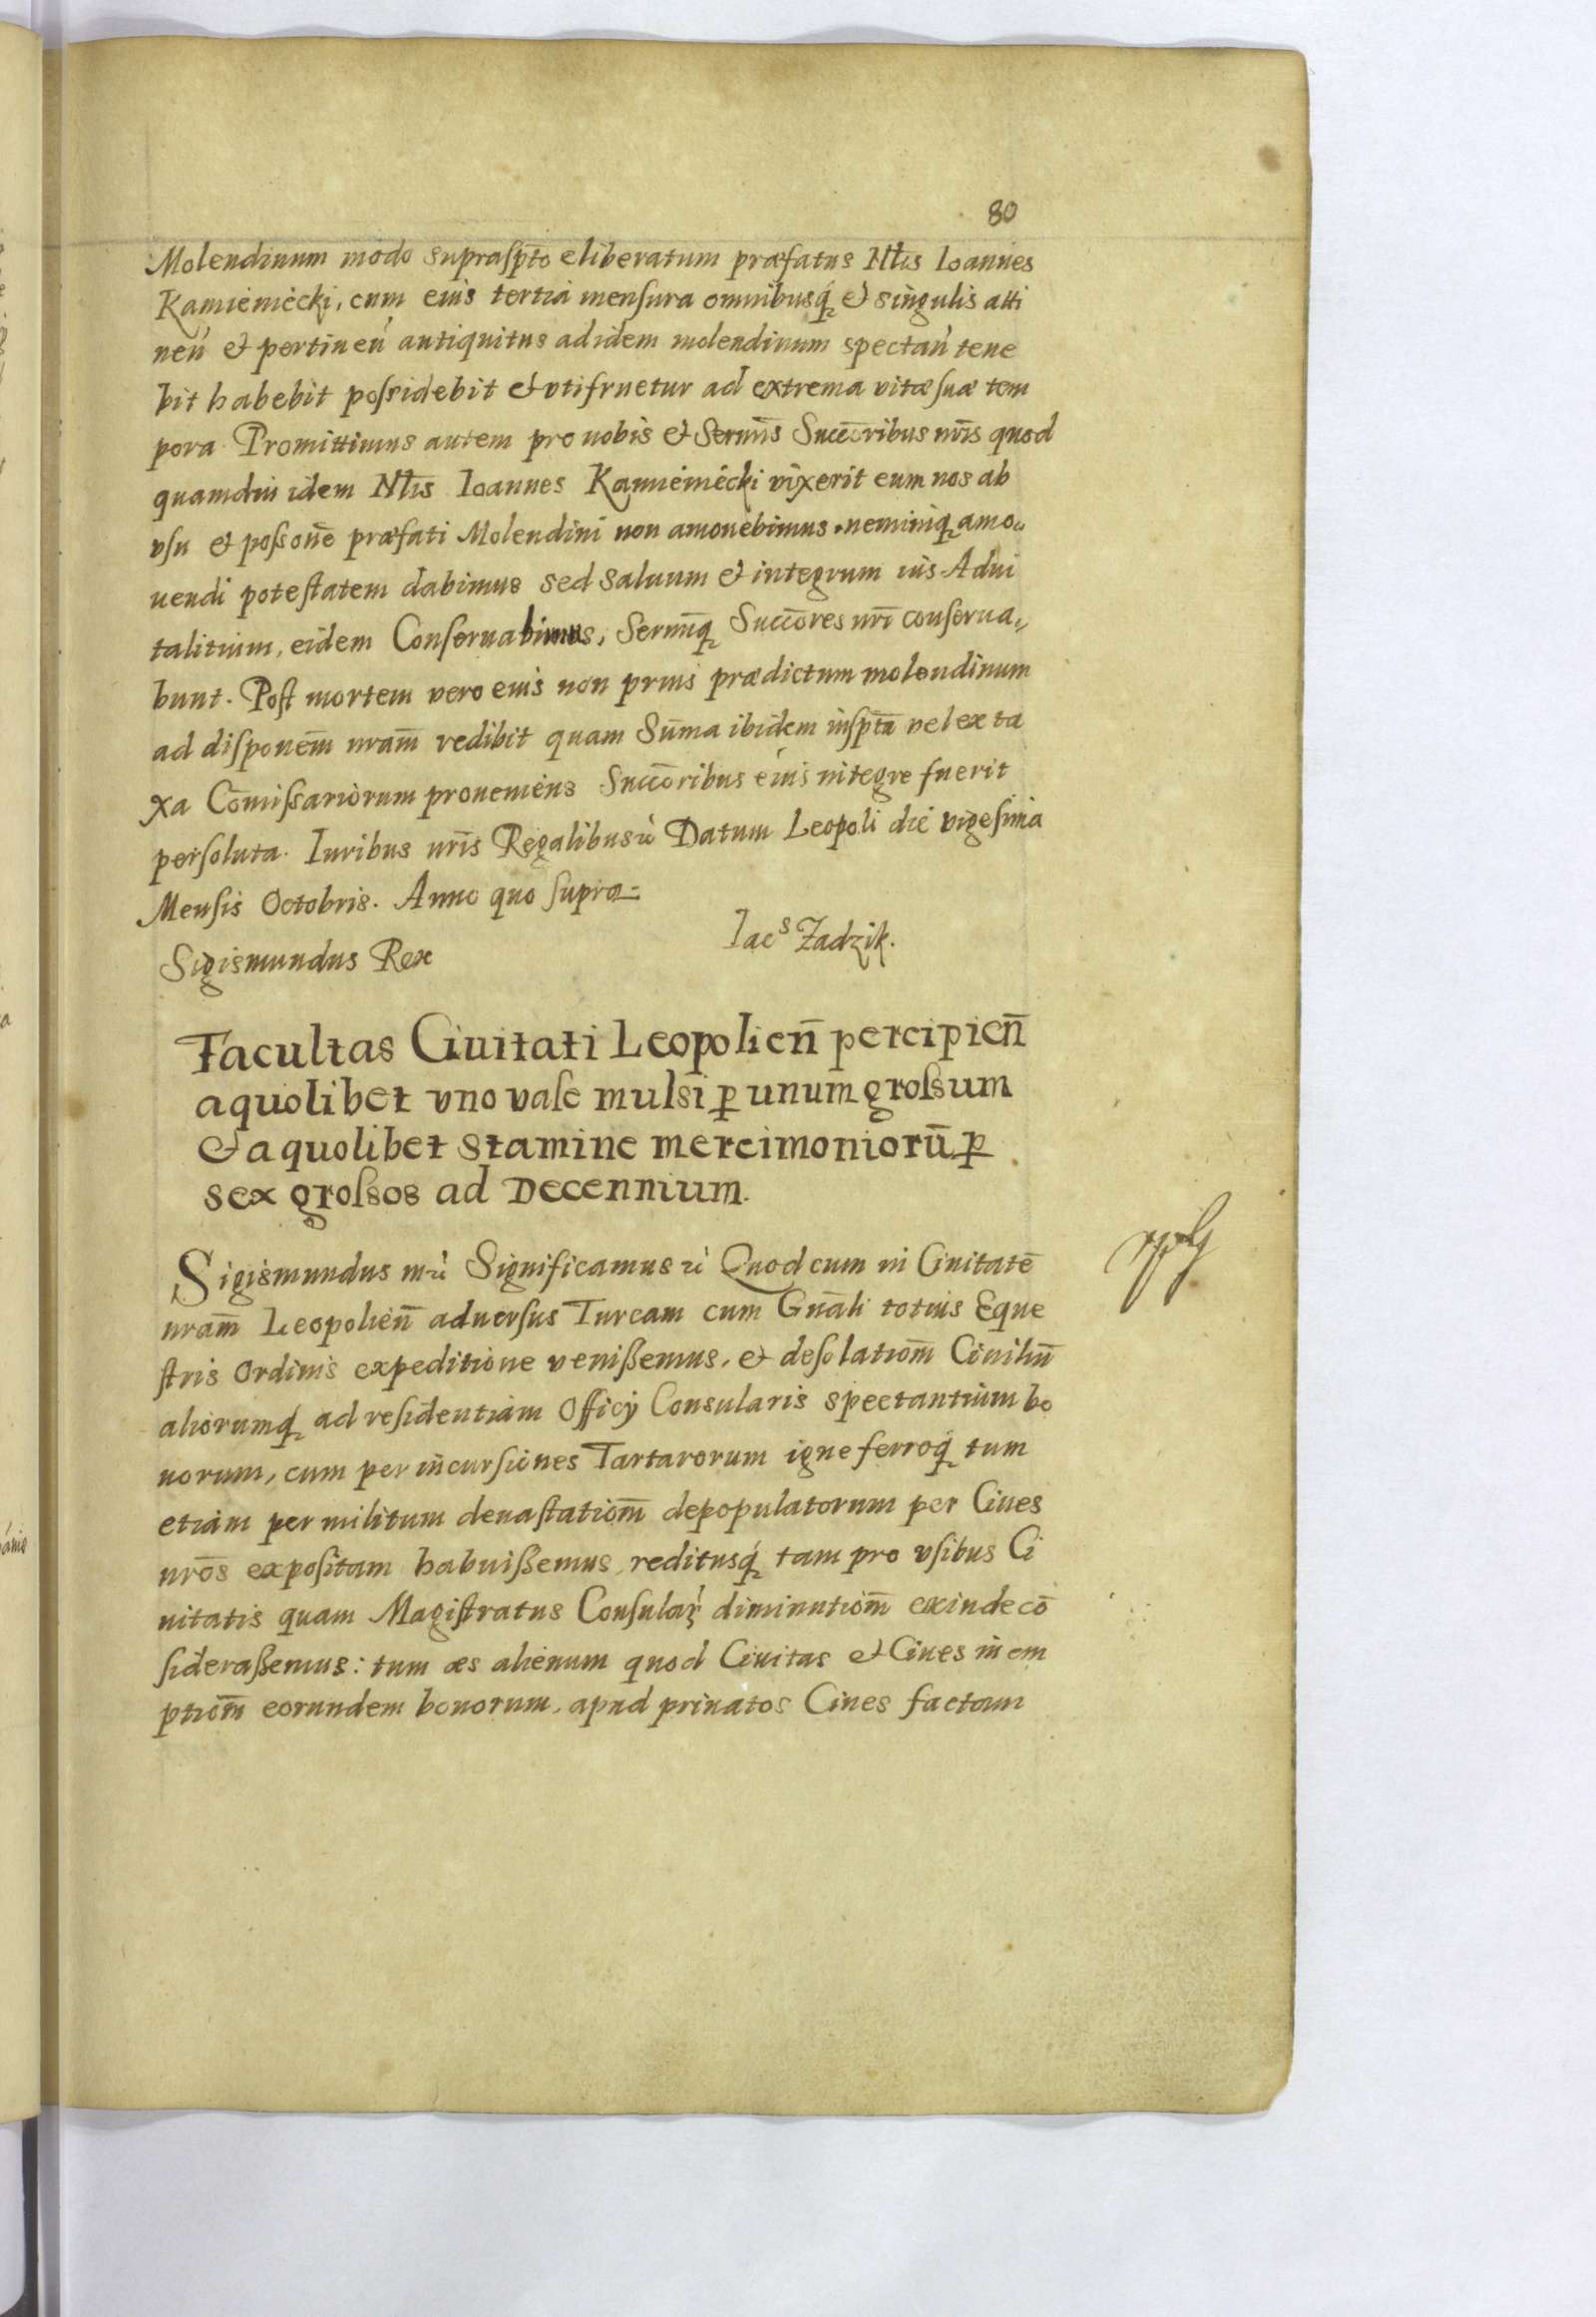 80
Molendinum modo supraſpto eliberatum præfatus Ntis Ioannes
Kamieniecki, cum eius tertia menſura omnibusq́ꝫ & singulis atti
neń & pertineń antiquitus ad idem molendinum spectań tene
bit habebit poſsidebit & vtifruetur ad extrema vitæ ſuæ tem
pora. Promittimus autem pro nobis & Sermīs Succōribus nr̄is quod
quamdiu idem Ntis Ioannes Kamieniecki vixerit eum nos ab
vſu & poſsone præfati Molendini non amouebimus neminiqꝫ amo
uendi poteſtatem dabimus sed Saluum & integrum ius Adui
talitium, eidem Conſeruabimus, Sermīqꝫ Succōres nr̄i conſerua„
bunt. Poſt mortem vero eius non prius prædictum molendinum
ad diſponem̄ nram̄ redibit quam Sum̄a ibidem inſpta vel ex ta
xa Com̄iſsariorum proueniens Succōribus eius integre fuerit
perſoluta. Iuribus nr̄is Regalibus ꝛć Datum Leopoli die vigeſima
Menſis Octobris. Anno quo ſupra
Sigismundus Rex
Iacˢ Zadzik.
Facultas Ciuitati Leopolien̄ percipien̄
a quolibet vno vaſe mulsi ꝑ unum groſsum
& a quolibet stamine mercimoniorū ꝑ
sex groſsos ad Decennium.
Sigismundus m ꝛć Significamus ꝛć Quod cum in Ciuitatē
nram̄ Leopolien̄ aduersus Turcam cum Gnāli totius Eque
ſtris Ordinis expeditione venißemus, & deſolatiom̄ Ciuiliu̅
aliorumq́ꝫ ad reſidentiam Officÿ Consularis spectantium bo
norum, cum per incurſiones Tartarorum igne ferroq́ꝫ tum
etiam per militum deuaſtatiom̄ depopulatorum per Ciues
nrōs expoſitam habuißemus, reditusq́ꝫ tam pro vſibus Ci
uitatis quam Magiſtratus Conſulaꝝ́ diminutiom̄ exinde cō
ſideraßemus: tum æs alienum quod Ciuitas & Ciues in em
ptiom̄ eorundem bonorum, apud priuatos Ciues factam